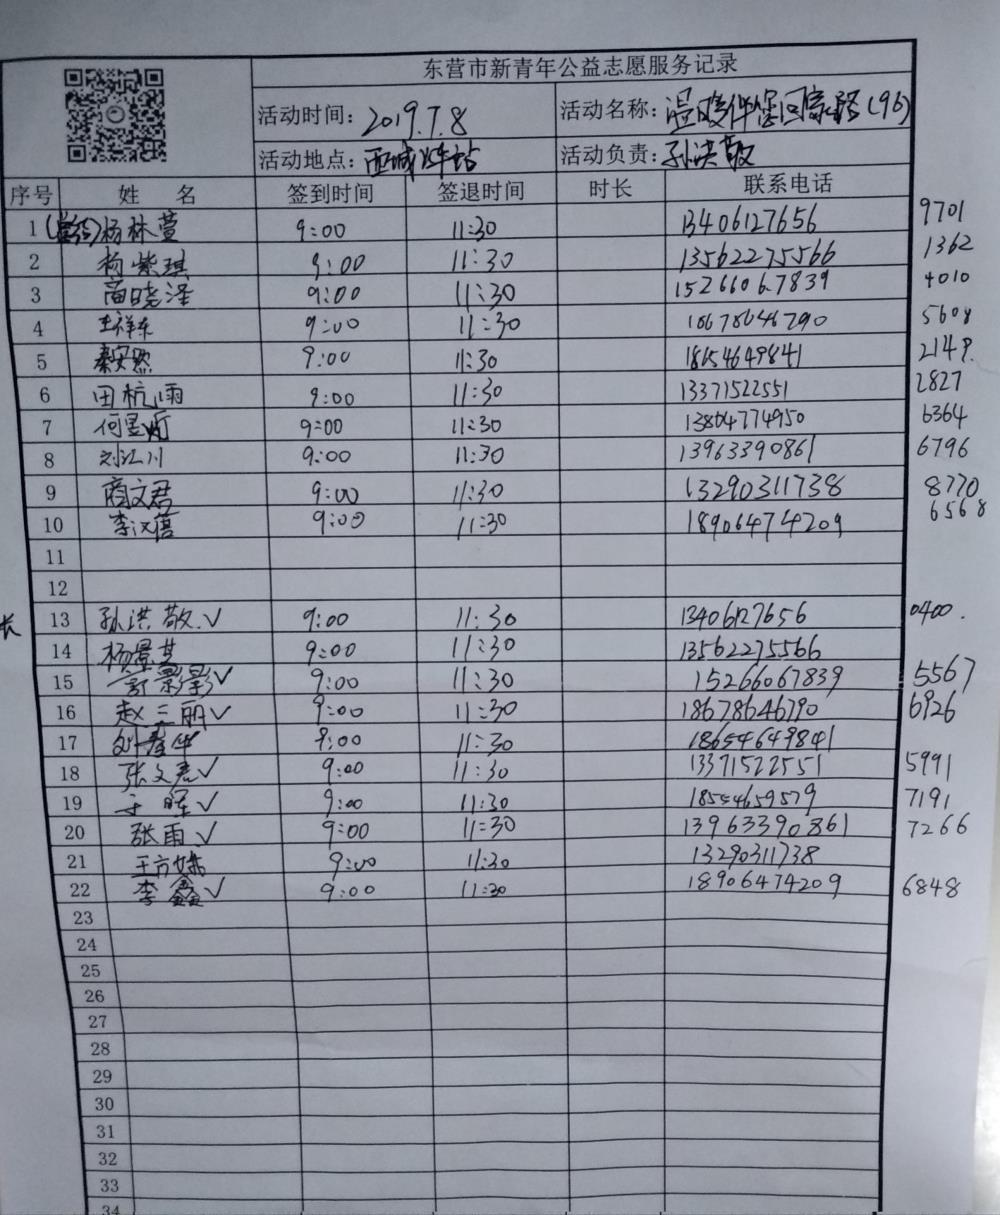 东营市新青年公益志愿服务记录
活动时间：2019.7.8 活动名称：温暖伴您回家路(96)
活动地点：西城汽车站 活动负责：孙洪敬
序号 姓 名 签到时间 签退时间 时长 联系电话
1 杨林萱 9:00 11:30 13406127656 9701
2 杨紫琪 9:00 11:30 13562275566 1362
3 商晓泽 9:00 11:30 15266067839 4010
4 王祥东 9:00 11:30 18678646790 5608
5 秦安然 9:00 11:30 18654649841 2149.
6 田杭雨 9:00 11:30 13371522551 2827
7 何昱昕 9:00 11:30 13864774950 6364
8 刘江川 9:00 11:30 13963390861 6796
9 商文君 9:00 11:30 13290311738 8770
10 李汉蓓 9:00 11:30 18906474209 6568
11
12
长 13 孙洪敬.√ 9:00 11:30 13406127656 0400.
14 杨景芝 9:00 11:30 13562275566
15 影影√ 9:00 11:30 15266067839 5567
16 赵三丽√ 9:00 11:30 18678646790 6926
17 刘春华 9:00 11:30 18654649841
18 张文君√ 9:00 11:30 13371522551 5991
19 于晖√ 9:00 11:30 18554659579 7191
20 张雨√ 9:00 11:30 13963390861 7266
21 王方妹 9:00 11:30 13290311738
22 李鑫√ 9:00 11:30 18906474209 6848
23
24
25
26
27
28
29
30
31
32
33
34